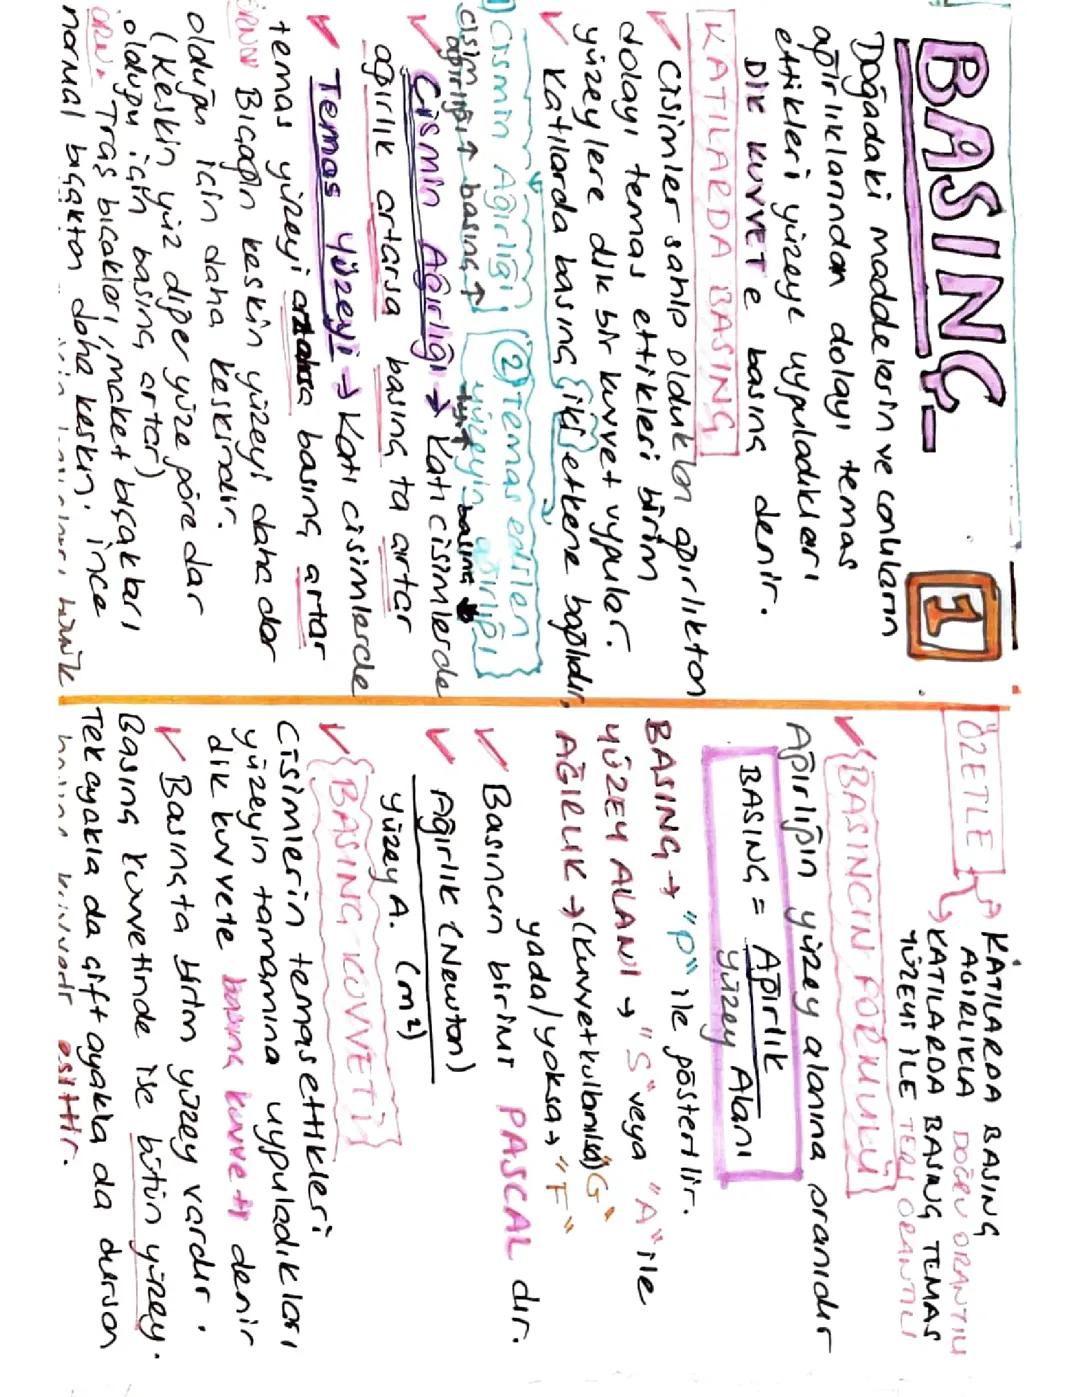 BASINÇ
1
Doğadaki maddelerin ve canlıların
ağırlıklarından dolayı temas
ettikleri yüzeye uyguladıkları
DİK KUVVET'e basınç denir.
KATILARDA BASINÇ
✓ Cisimler sahip oldukları ağırlıktan
dolayı temas ettikleri birim
yüzeylere dik bir kuvvet uygular.
✓ Katılarda basınç iki etkene bağlıdır.
1) Cismin Ağırlığı 2) Temas edilen
yüzeyin ağırlığı
cisim ağırlığı ↑ basınç ↑
basınç ↓
✓ Cismin Ağırlığı → Katı cisimlerde
ağırlık artarsa basınç ta artar
✓ Temas yüzeyi → Katı cisimlerde
temas yüzeyi basınç artar
ÖRN Bıçağın keskin yüzeyi daha dar
olduğu için daha keskindir.
(Keskin yüz diğer yüze göre dar
olduğu için basınç artar)
ÖRN. Traş bıçakları, maket bıçakları
normal bıçaktan daha keskin, ince
ÖZETLE
→ KATILARDA BASINÇ
AĞIRLIKLA DOĞRU ORANTILI
→ KATILARDA BASINÇ TEMAS
YÜZEYİ İLE TERS ORANTILI
✓ BASINCIN FORMÜLÜ
Ağırlığın yüzey alanına oranıdır
BASINÇ = Ağırlık
Yüzey Alanı
BASINÇ → "P" ile gösterilir.
YÜZEY ALANI → "S" veya "A" ile
AĞIRLIK → (Kuvvet kullanılsa) "G"
yada/yoksa → "F"
✓ Basıncın birimi PASCAL dır.
✓ Ağırlık (Newton)
yüzey A. (m²)
✓ BASINÇ KUVVETİ
Cisimlerin temas ettikleri
yüzeyin tamamına uyguladıkları
dik kuvvete basınç kuvveti denir
✓ Basınçta birim yüzey vardır.
Basınç kuvvetinde ise bütün yüzey.
Tek ayakla da çift ayakla da dursan
basınç kuvveti eşittir.